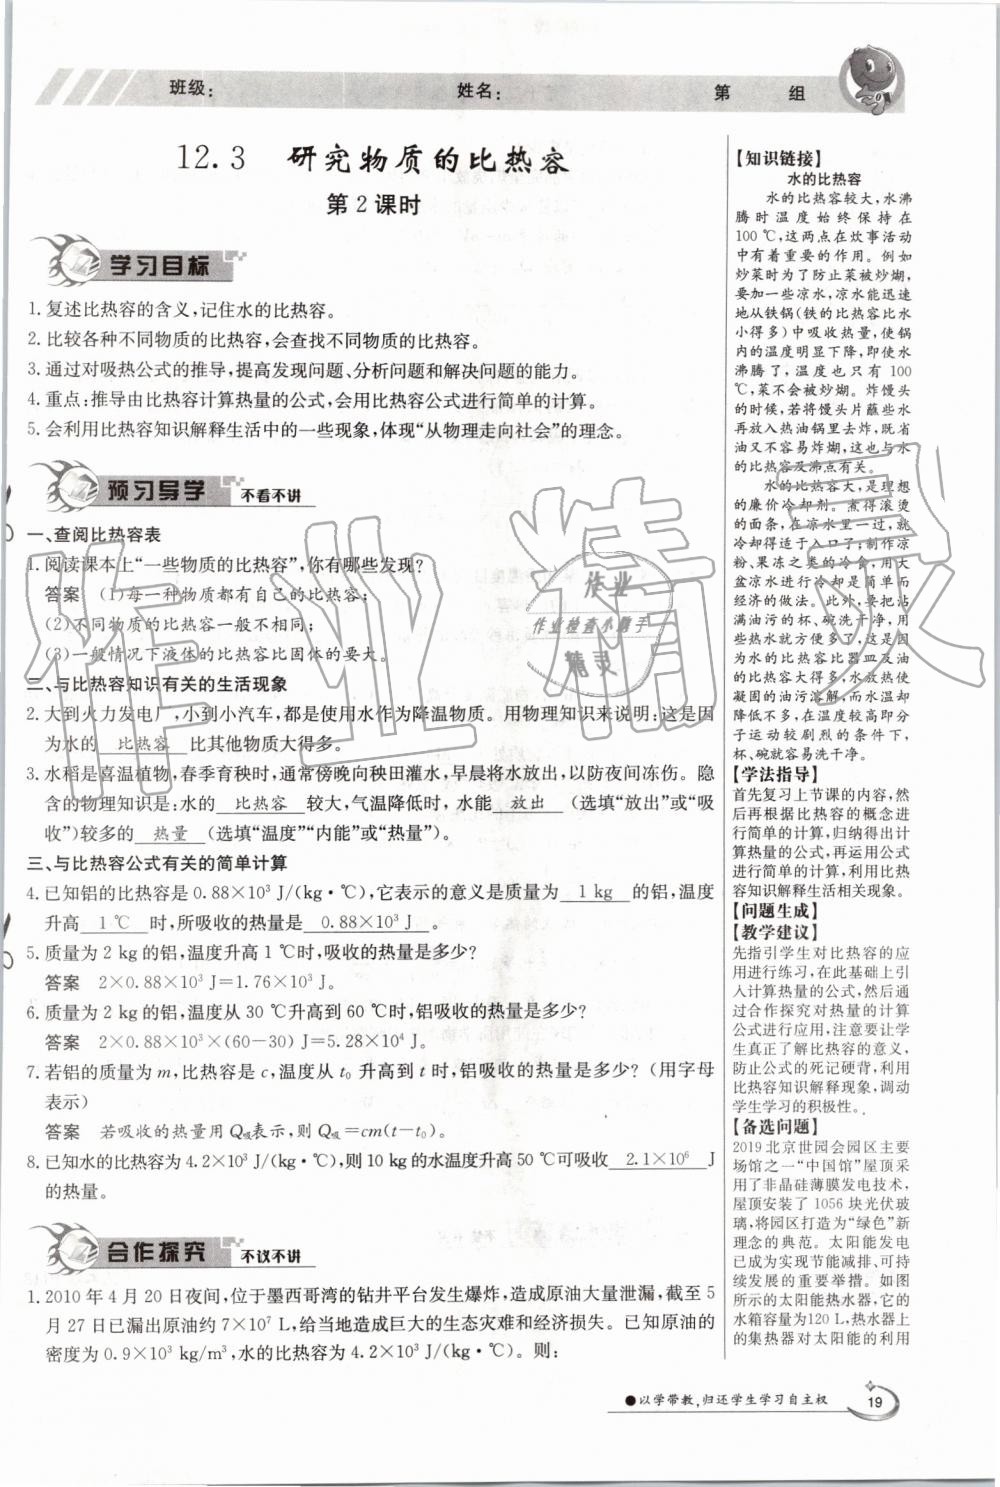 班级：　　姓名：　　第　　组
12.3　研究物质的比热容
第2课时
学习目标
1. 复述比热容的含义,记住水的比热容。
2. 比较各种不同物质的比热容,会查找不同物质的比热容。
3. 通过对吸热公式的推导,提高发现问题、分析问题和解决问题的能力。
4. 重点:推导由比热容计算热量的公式,会用比热容公式进行简单的计算。
5. 会利用比热容知识解释生活中的一些现象,体现“从物理走向社会”的理念。
预习导学　不看不讲
一、查阅比热容表
1. 阅读课本上“一些物质的比热容”,你有哪些发现?
答案　(1)每一种物质都有自己的比热容;
(2)不同物质的比热容一般不相同;
(3)一般情况下液体的比热容比固体的要大。
二、与比热容知识有关的生活现象
2. 大到火力发电厂,小到小汽车,都是使用水作为降温物质。用物理知识来说明:这是因
为水的　比热容　比其他物质大得多。
3. 水稻是喜温植物,春季育秧时,通常傍晚向秧田灌水,早晨将水放出,以防夜间冻伤。隐
含的物理知识是:水的　比热容　较大,气温降低时,水能　放出　(选填“放出”或“吸
收”)较多的　热量　(选填“温度”“内能”或“热量”)。
三、与比热容公式有关的简单计算
4. 已知铝的比热容是0.88×10³ J/(kg·℃),它表示的意义是质量为　1 kg　的铝,温度
升高　1 ℃　时,所吸收的热量是　0.88×10³ J　。
5. 质量为2 kg的铝,温度升高1 ℃时,吸收的热量是多少?
答案　2×0.88×10³ J=1.76×10³ J。
6. 质量为2 kg的铝,温度从30 ℃升高到60 ℃时,铝吸收的热量是多少?
答案　2×0.88×10³×(60-30) J=5.28×10⁴ J。
7. 若铝的质量为m,比热容是c,温度从t₀升高到t时,铝吸收的热量是多少?(用字母
表示)
答案　若吸收的热量用Q吸表示,则Q吸=cm(t-t₀)。
8. 已知水的比热容为4.2×10³ J/(kg·℃),则10 kg的水温度升高50 ℃可吸收　2.1×10⁶　J
的热量。
合作探究　不议不讲
1. 2010年4月20日夜间,位于墨西哥湾的钻井平台发生爆炸,造成原油大量泄漏,截至5
月27日已漏出原油约7×10⁷ L,给当地造成巨大的生态灾难和经济损失。已知原油的
密度为0.9×10³ kg/m³,水的比热容为4.2×10³ J/(kg·℃)。则:
【知识链接】
水的比热容
水的比热容较大,水沸
腾时温度始终保持在
100 ℃,这两点在炊事活动
中有着重要的作用。例如
炒菜时为了防止菜被炒煳,
要加一些凉水,凉水能迅速
地从铁锅(铁的比热容比水
小得多)中吸收热量,使锅
内的温度明显下降,即使水
沸腾了,温度也只有100
℃,菜不会被炒煳。炸馒头
的时候,若将馒头片蘸些水
再放入热油锅里去炸,既省
油又不容易炸煳,这也与水
的比热容及沸点有关。
水的比热容大,是理想
的廉价冷却剂。煮得滚烫
的面条,在凉水里一过,就
冷却得适于入口了;制作凉
粉、果冻之类的冷食,用大
盆凉水进行冷却是简单而
经济的做法。此外,要把沾
满油污的杯、碗洗干净,用
些热水就方便多了,这是因
为水的比热容比器皿及油
的比热容大得多,水放热使
凝固的油污溶解,而水温却
降低不多,在温度较高即分
子运动较剧烈的条件下,
杯、碗就容易洗干净。
【学法指导】
首先复习上节课的内容,然
后再根据比热容的概念进
行简单的计算,归纳得出计
算热量的公式,再运用公式
进行简单的计算,利用比热
容知识解释生活相关现象。
【问题生成】
【教学建议】
先指引学生对比热容的应
用进行练习,在此基础上引
入计算热量的公式,然后通
过合作探究对热量的计算
公式进行应用,注意要让学
生真正了解比热容的意义,
防止公式的死记硬背,利用
比热容知识解释现象,调动
学生学习的积极性。
【备选问题】
2019北京世园会园区主要
场馆之一“中国馆”屋顶采
用了非晶硅薄膜发电技术,
屋顶安装了1056块光伏玻
璃,将园区打造为“绿色”新
理念的典范。太阳能发电
已成为实现节能减排、可持
续发展的重要举措。如图
所示的太阳能热水器,它的
水箱容量为120 L,热水器上
的集热器对太阳能的利用
●以学带教,归还学生学习自主权
19
作业精灵
作业
作业检查小助手
精灵